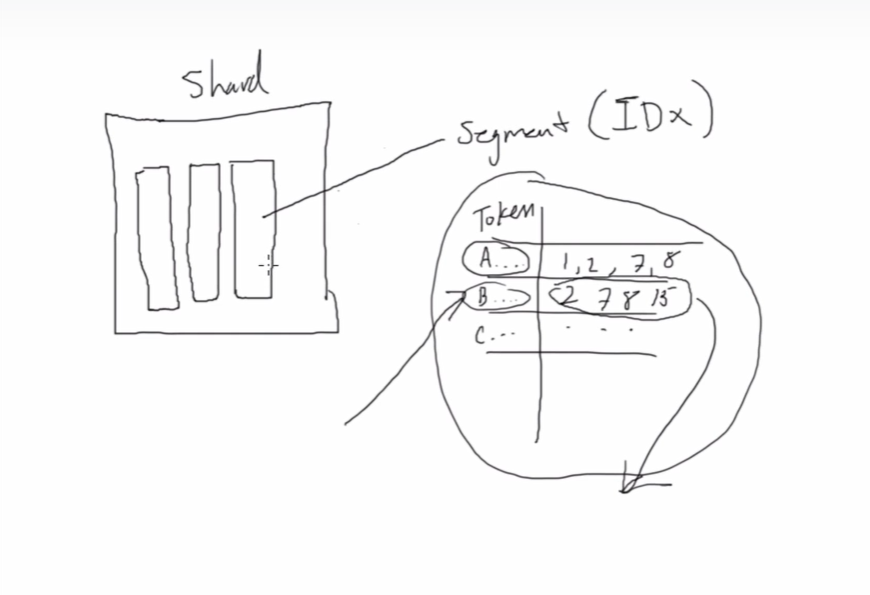 Shard
Segment (IDx)
Token
A.... 1, 2, 7, 8
B.... 2 7 8 15
C... . . .